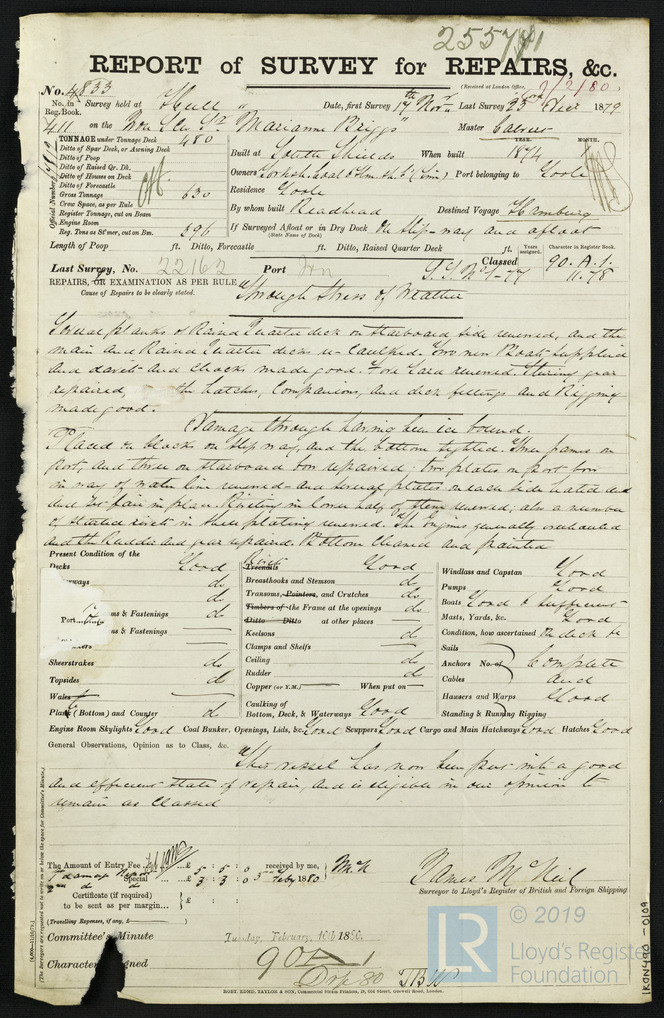 2557
REPORT of SURVEY for REPAIRS, &c.
(Received at London Office, 2/2/80)
No. 4833
No. in Reg. Book. Survey held at Hull Date, first Survey 17th Nov Last Survey 23 1879
411 on the Iron Scr Sr "Marianne Briggs" Master
TONNAGE under Tonnage Deck 480
Ditto of Spar Deck, or Awning Deck
Ditto of Poop
Ditto of Raised Qr. Dk.
Ditto of Houses on Deck
Ditto of Forecastle
Gross Tonnage 630
Crew Space, as per Rule
Register Tonnage, cut on Beam
Engine Room
Reg. Tons as St'mer, cut on Bm. 396
Official Number
Built at South Shields When built YEAR. 1874 MONTH.
Owners Yorkshire Coal & Stm Sh Co (Lim) Port belonging to Goole
Residence Goole
By whom built Readhead Destined Voyage Hamburg
If Surveyed Afloat or in Dry Dock On slip-way and afloat
(State Name of Dock)
Length of Poop ft. Ditto, Forecastle ft. Ditto, Raised Quarter Deck ft.
Years assigned. Character in Register Book.
Last Survey, No. 22162 Port Classed 90.A.1.
11.78
REPAIRS, OR EXAMINATION AS PER RULE
Cause of Repairs to be clearly stated.
"Through Stress of Weather
Several planks of Raised Quarter deck on starboard side renewed, and the
main and Raised Quarter decks re-caulked. Two new Boats supplied
and davits and chocks made good. Fore Yard renewed. Steering gear
repaired, the hatches, Companions, and deck fittings and Rigging
made good.
Damage through having been ice bound.
Placed on blocks on slip way, and the bottom sighted. Three frames on
Port, and three on starboard bow repaired; two plates on port bow
in way of water line renewed - and several plates on each side heated and
and set fair in place. Riveting in lower half of them renewed; also a number
of started rivets in shell plating renewed. The Engines generally overhauled
and the Rudder and gear repaired. Bottom cleaned and painted
Present Condition of the
Decks Good
do
Port
ms & Fastenings do
ms & Fastenings
Sheerstrakes do
Topsides do
Wales
Plate (Bottom) and Counter do
Rivets Treenails Good
Breasthooks and Stemson do
Transoms, Pointers, and Crutches do
Timbers of the Frame at the openings do
Ditto Ditto at other places
Keelsons do
Clamps and Shelfs
Ceiling do
Rudder do
Copper (or Y.M.) When put on
Caulking of
Bottom, Deck, & Waterways Good
Windlass and Capstan Good
Pumps Good
Boats Good & sufficient
Masts, Yards, &c. Good
Condition, how ascertained On deck &c
Sails
Anchors No. of Complete
Cables and
Hawsers and Warps Good
Standing & Running Rigging
Engine Room Skylights Good Coal Bunker, Openings, Lids, &c. Good Scuppers Good Cargo and Main Hatchways Good Hatches Good
General Observations, Opinion as to Class, &c.
"This vessel has now been put into a good
and efficient state of repair, and is eligible in our opinion to
remain as Classed
The Amount of Entry Fee £ 5 : 5 : 0 received by me,
Damage Report Special £ 3 : 3 : 0 3rd Feby 1880
Certificate (if required) £ : :
to be sent as per margin...
(Travelling Expenses, if any, £ )
James McNeil
Surveyor to Lloyd's Register of British and Foreign Shipping
Committee's Minute Tuesday, February, 10th 1880.
Character Assigned 90 A 1
ROBT. EDMD. TAYLOR & SON, Commercial Steam Printers, 19, Old Street, Goswell Road, London.
(The Surveyors are requested not to write on or below the space for Committee's Minute.)
IRON490-0109
LR
© 2019
Lloyd's Register
Foundation